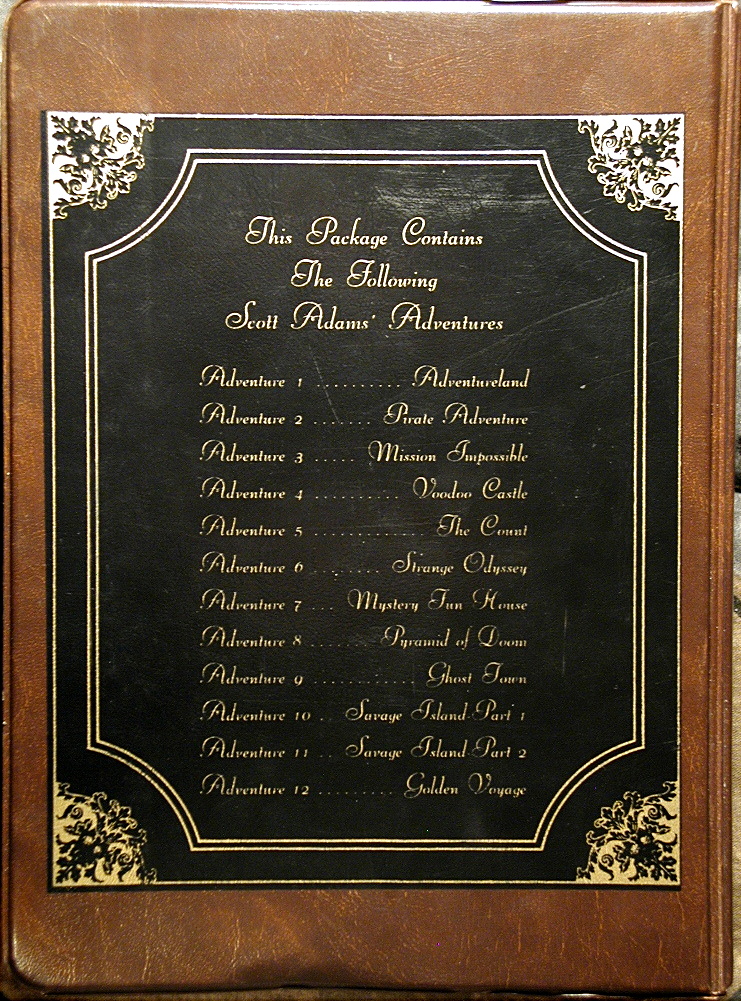 This Package Contains
The Following
Scott Adams' Adventures
Adventure 1 .......... Adventureland
Adventure 2 ....... Pirate Adventure
Adventure 3 ..... Mission Impossible
Adventure 4 .......... Voodoo Castle
Adventure 5 ............. The Count
Adventure 6 ........ Strange Odyssey
Adventure 7 ... Mystery Fun House
Adventure 8 ....... Pyramid of Doom
Adventure 9 ............ Ghost Town
Adventure 10 .. Savage Island-Part 1
Adventure 11 .. Savage Island-Part 2
Adventure 12 ......... Golden Voyage